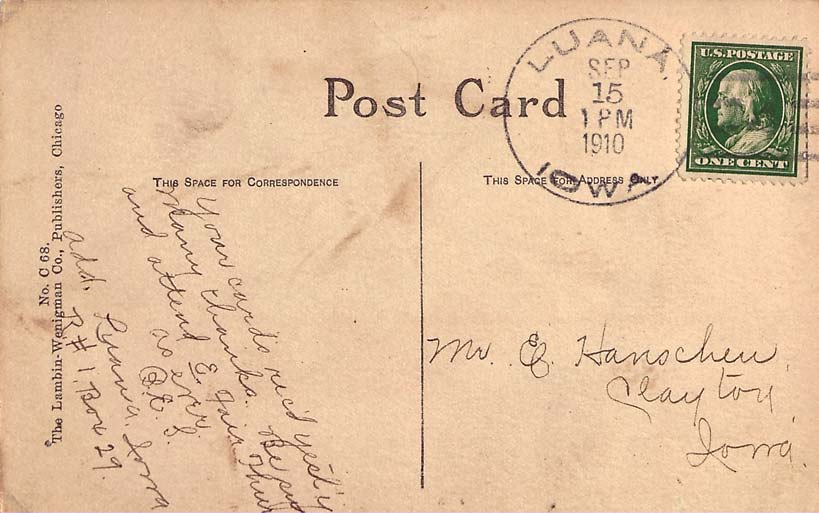 Post Card
THIS SPACE FOR CORRESPONDENCE
THIS SPACE FOR ADDRESS ONLY
LUANA,
SEP
15
1 PM
1910
IOWA
U.S. POSTAGE
ONE CENT
No. C 68.
The Lambin-Wenigman Co., Publishers, Chicago
Your cards recd yest'y
Many thanks. Be sure
and attend E. Fair
as ever
S.
add. Luana, Iowa
R # 1, Box 29.
Mr. E. Hanschen,
Clayton,
Iowa.